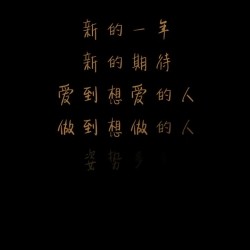 新的一年
新的期待
爱到想爱的人
做到想做的人
姿势